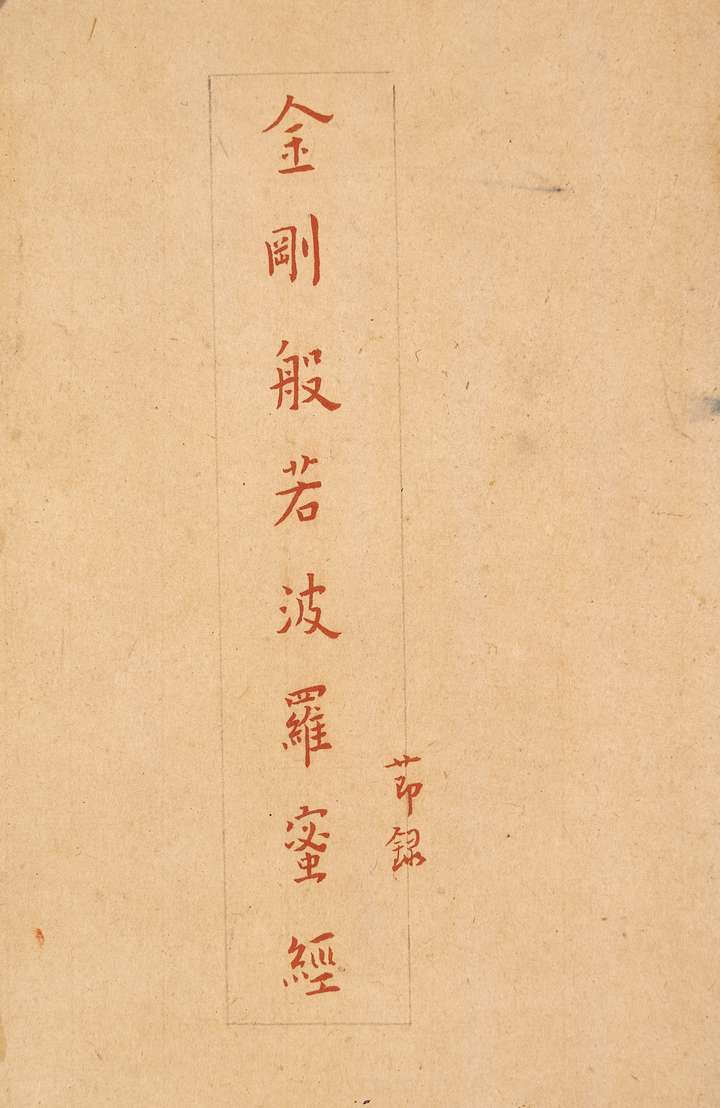 金剛般若波羅蜜經
節録